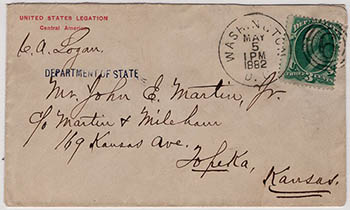 UNITED STATES LEGATION
Central America
C. A. Logan.
DEPARTMENT OF STATE
WASHINGTON
MAY
5
1PM
1882
D.
Mr. John E. Martin, Jr.
c/o Martin & Mileham
169 Kansas Ave.
Topeka,
Kansas.